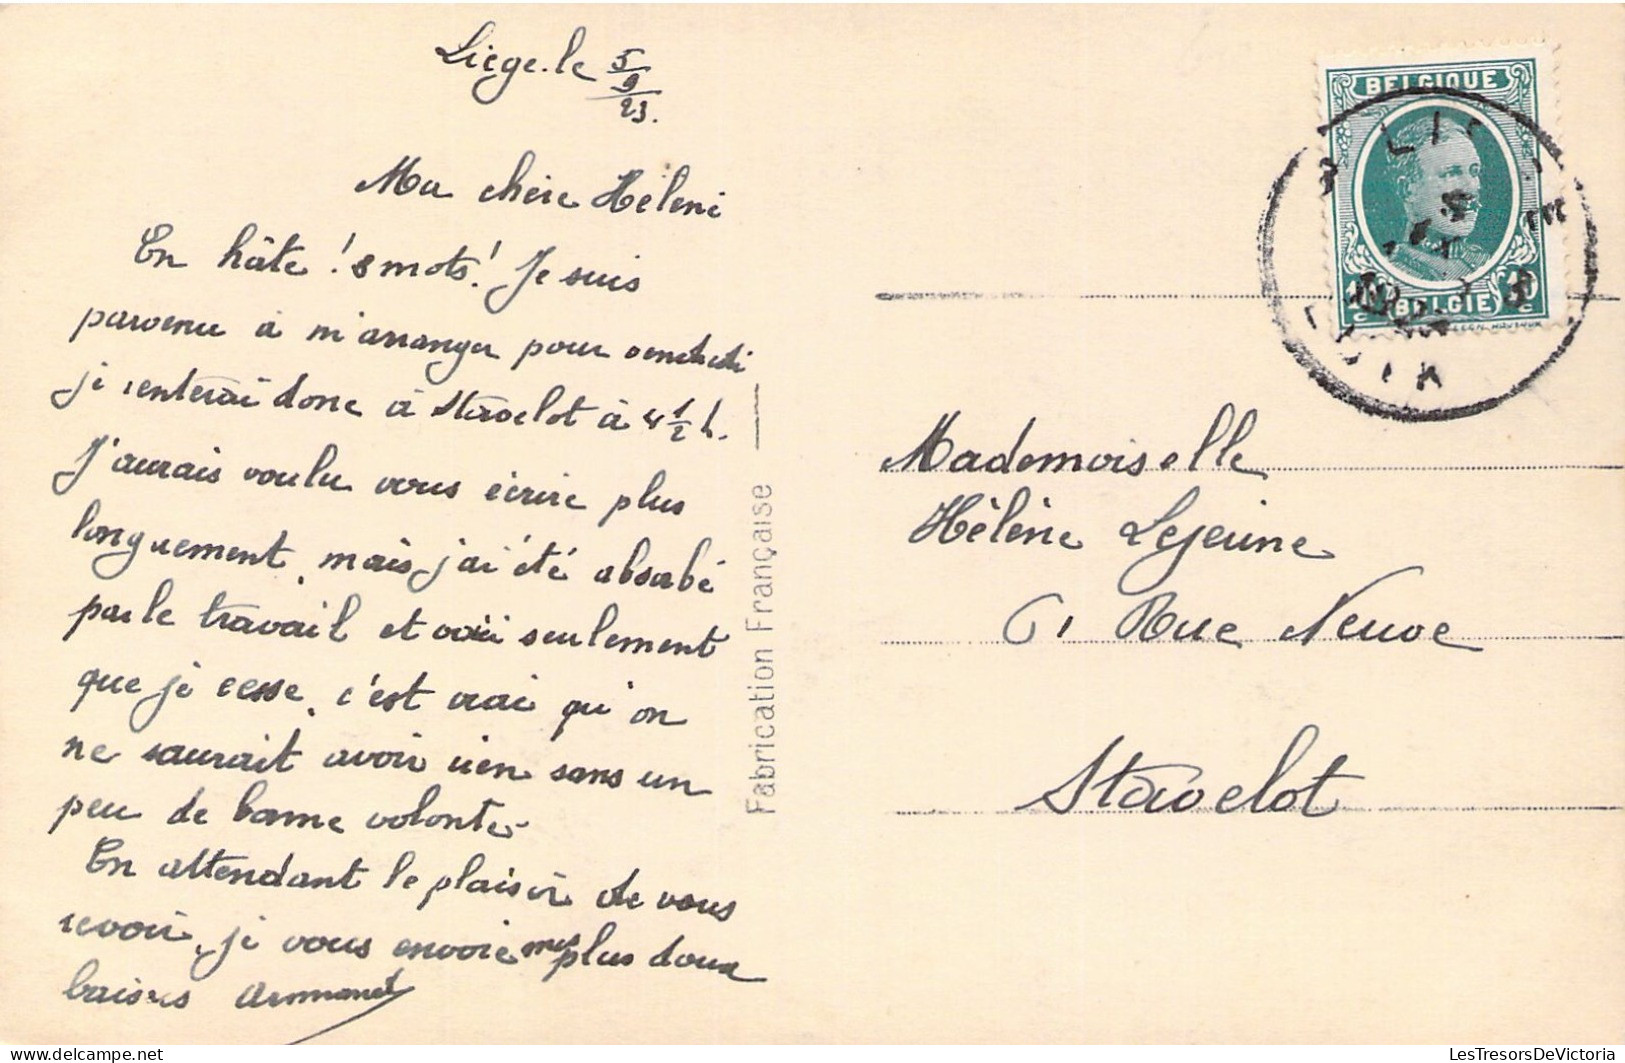 Liége. le 5/9/23.
Ma chère Hélène
En hâte ! 8 mots ! Je suis
parvenu à m'arranger pour vendredi
je renterai donc à Stavelot à 4 1/2 h.
J'aurais voulu vous écrire plus
longuement, mais j'ai été absorbé
par le travail et voici seulement
que je cesse, c'est vrai qu'on
ne saurait avoir rien sans un
peu de bonne volonté.
En attendant le plaisir de vous
revoir, je vous envoie mes plus doux
baisers Armand
Fabrication Française
BELGIQUE
BELGIE
Mademoiselle
Hélène Lejeune
6, Rue Neuve
Stavelot
LesTresorsDeVictoria
delcampe.net